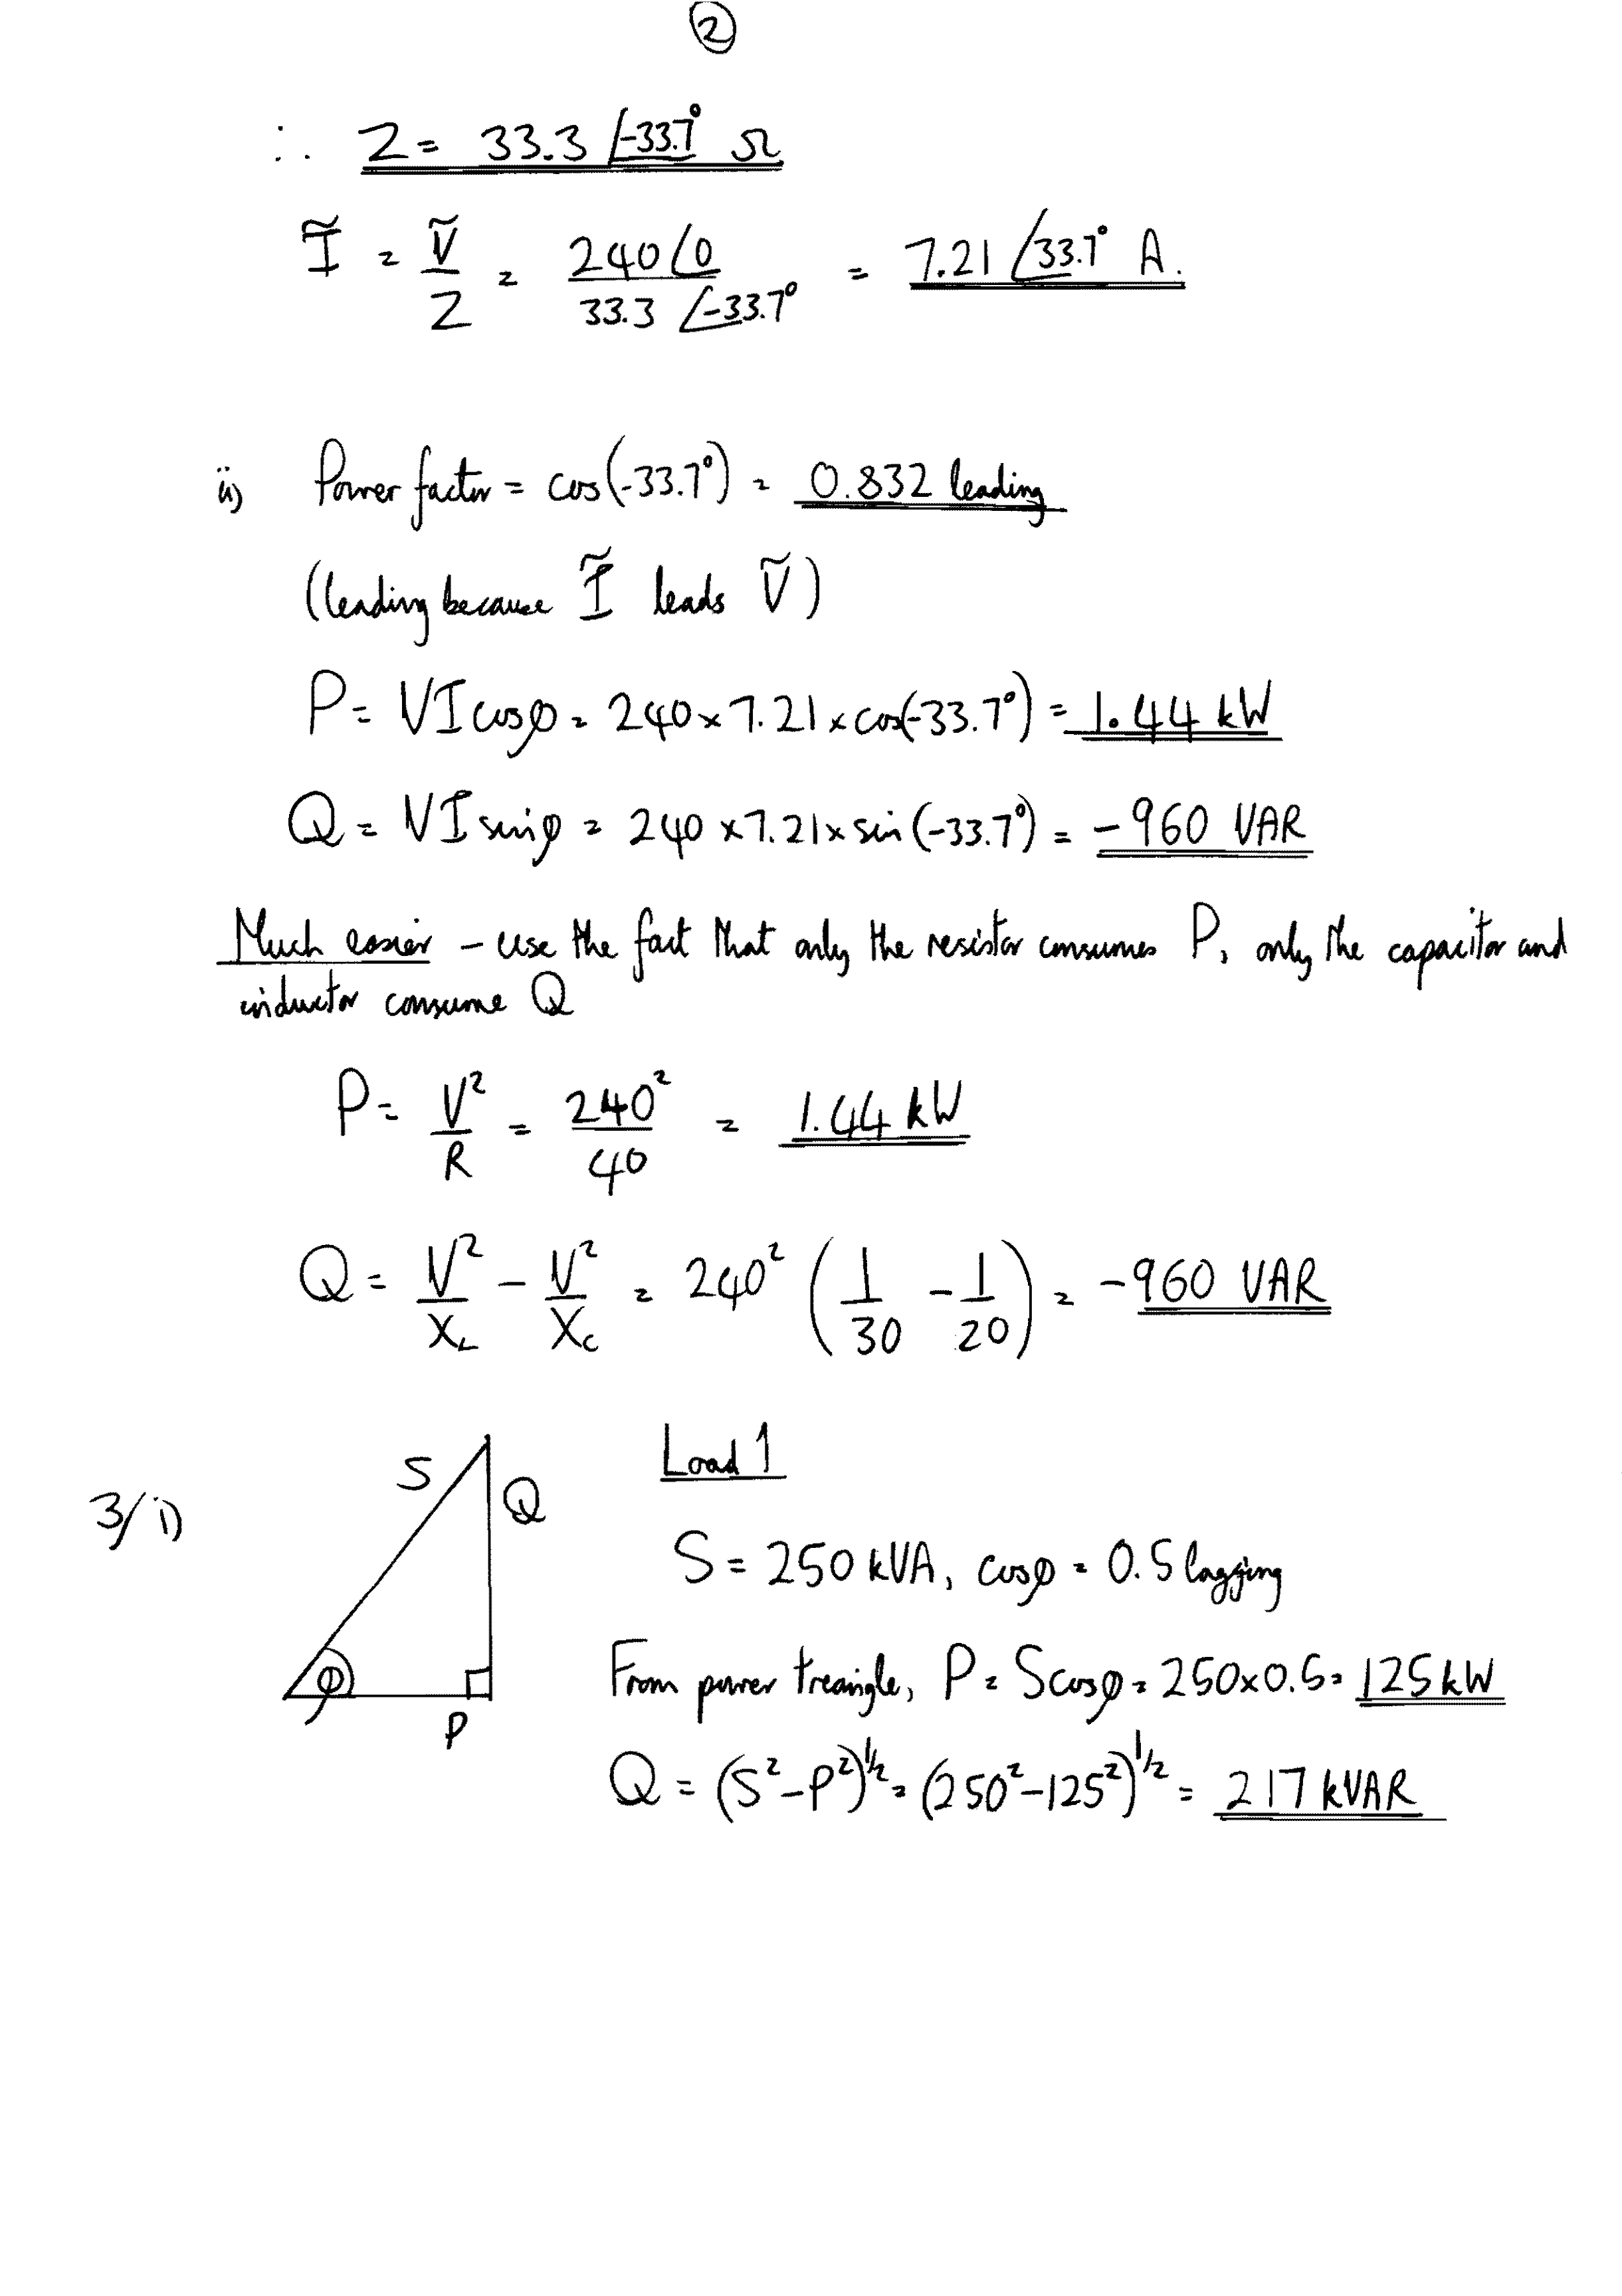 ②
∴ Z = 33.3 ∠-33.7° Ω
Ĩ = Ṽ/Z = 240∠0 / 33.3 ∠-33.7° = 7.21 ∠33.7° A.
ii) Power factor = cos(-33.7°) = 0.832 leading
(leading because Ĩ leads Ṽ)
P = VI cosφ = 240 × 7.21 × cos(-33.7°) = 1.44 kW
Q = VI sinφ = 240 × 7.21 × sin(-33.7°) = -960 VAR
Much easier - use the fact that only the resistor consumes P, only the capacitor and
inductor consume Q
P = V²/R = 240²/40 = 1.44 kW
Q = V²/X_L - V²/X_C = 240² (1/30 - 1/20) = -960 VAR
3/i)
S
Q
φ
P
Load 1
S = 250 kVA, cosφ = 0.5 lagging
From power treangle, P = S cosφ = 250×0.5 = 125 kW
Q = (S²-P²)^½ = (250²-125²)^1/2 = 217 kVAR